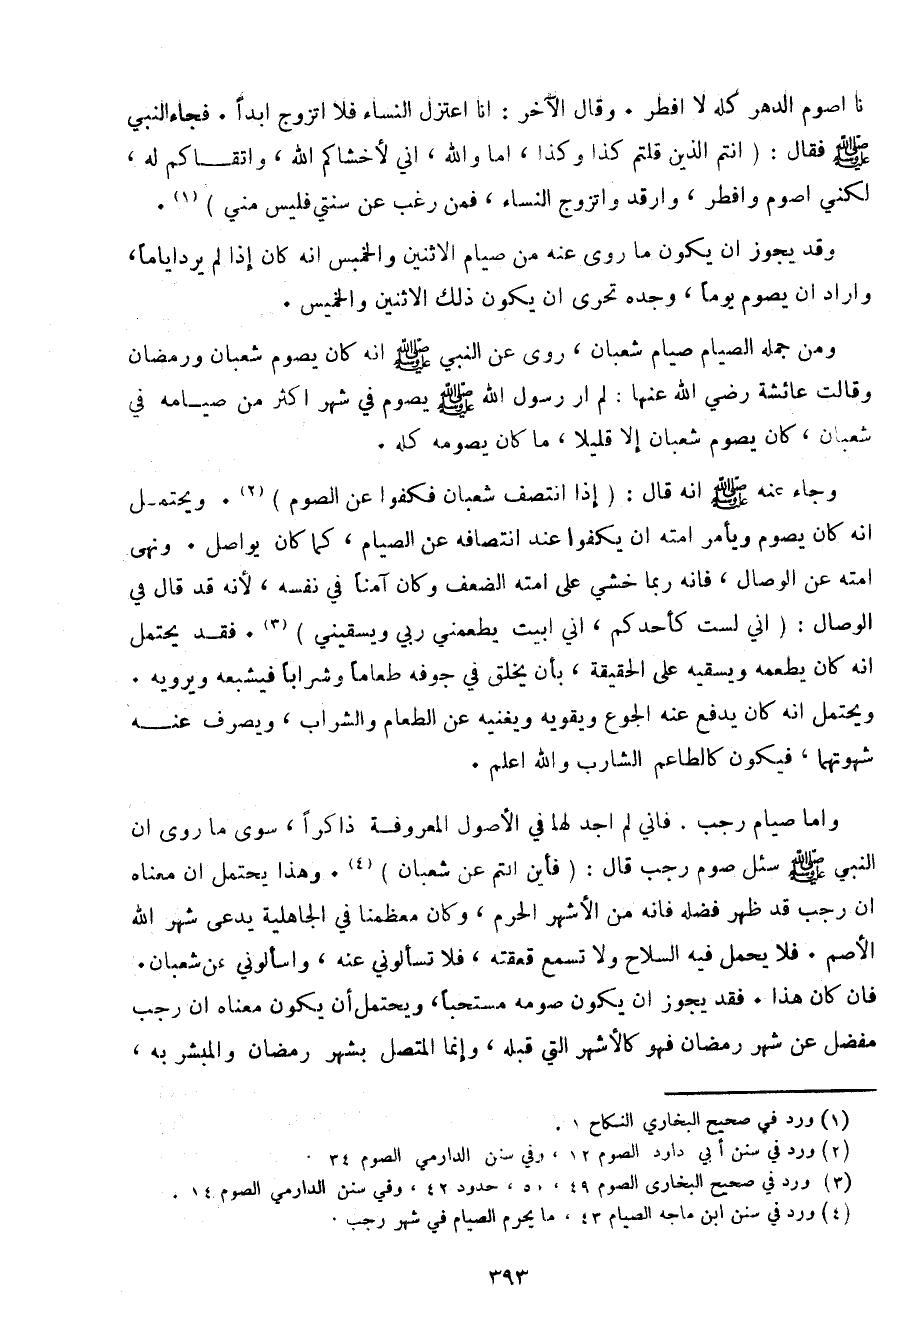 نا اصوم الدهر كله لا افطر . وقال الآخر : انا اعتزل النساء فلا اتزوج ابداً . فجاء النبي
ﷺ فقال : ( انتم الذين قلتم كذا وكذا ، اما والله ، اني لأخشاكم الله ، واتقـــاكم له ،
لكني اصوم وافطر ، وارقد واتزوج النساء ، فمن رغب عن سنتي فليس مني ) (١) .
وقد يجوز ان يكون ما روى عنه من صيام الاثنين والخميس انه كان إذا لم يرد اياماً،
واراد ان يصوم يوماً ، وجده تحرى ان يكون ذلك الاثنين والخميس .
ومن جمله الصيام صيام شعبان ، روى عن النبي ﷺ انه كان يصوم شعبان ورمضان
وقالت عائشة رضي الله عنها : لم ار رسول الله ﷺ يصوم في شهر اكثر من صيـامه في
شعبان ، كان يصوم شعبان إلا قليلا ، ما كان يصومه كله .
وجاء عنه ﷺ انه قال : ( إذا انتصف شعبان فكفوا عن الصوم ) (٢) . ويحتمـل
انه كان يصوم ويأمر امته ان يكفوا عند انتصافه عن الصيام ، كما كان يواصل . ونهى
امته عن الوصال ، فانه ربما خشي على امته الضعف وكان آمناً في نفسه ، لأنه قد قال في
الوصال : ( اني لست كأحدكم ، اني ابيت يطعمني ربي ويسقيني ) (٣) . فقـد يحتمل
انه كان يطعمه ويسقيه على الحقيقة ، بأن يخلق في جوفه طعاماً وشراباً فيشبعه ويرويه .
ويحتمل انه كان يدفع عنه الجوع ويقويه ويغنيه عن الطعام والشراب ، ويصرف عنـــه
شهوتهما ، فيكون كالطاعم الشارب والله اعلم .
واما صيام رجب . فاني لم اجد لها في الأصول المعروفـة ذاكراً ، سوى ما روى ان
النبي ﷺ سئل صوم رجب قال : ( فأين انتم عن شعبان ) (٤) . وهذا يحتمل ان معناه
ان رجب قد ظهر فضله فانه من الأشهر الحرم ، وكان معظمنا في الجاهلية يدعى شهر الله
الأصم . فلا يحمل فيه السلاح ولا تسمع قعقته ، فلا تسألوني عنه ، واسألوني عن شعبان.
فان كان هذا . فقد يجوز ان يكون صومه مستحباً، ويحتمل أن يكون معناه ان رجب
مفضل عن شهر رمضان فهو كالأشهر التي قبله ، وإنما المتصل بشهر رمضان والمبشر به ،
(١) ورد في صحيح البخاري النكاح ١ .
(٢) ورد في سنن أبي دارد الصوم ١٢ ، وفي سنن الدارمي الصوم ٣٤ .
(٣) ورد في صحيح البخارى الصوم ٤٩ ، ٥٠ ، حدود ٤٢ ، وفي سنن الدارمي الصوم ١٤ .
(٤) ورد في سنن ابن ماجه الصيام ٤٣ ، ما يحرم الصيام في شهر رجب .
٣٩٣